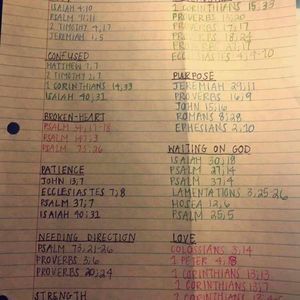 ISAIAH 4:10
PSALM 11:11
2 TIMOTHY 4:17
JEREMIAH 1:5
CONFUSED
MATTHEW 7:7
2 TIMOTHY 2:7
1 CORINTHIANS 14:33
ISAIAH 40:31
BROKEN-HEART
PSALM 34:17-18
PSALM 147:3
PSALM 73:26
PATIENCE
JOHN 13:7
ECCLESIASTES 7:8
PSALM 37:7
ISAIAH 40:31
NEEDING DIRECTION
PSALM 73:21-26
PROVERBS 3:6
PROVERBS 20:24
STRENGTH
1 CORINTHIANS 15:33
PROVERBS 13:20
PROVERBS 17:17
PROVERBS 18:24
PROVERBS 27:17
ECCLESIASTES 4:9-10
PURPOSE
JEREMIAH 29:11
PROVERBS 16:9
JOHN 15:16
ROMANS 8:28
EPHESIANS 2:10
WAITING ON GOD
ISAIAH 30:18
PSALM 27:14
PSALM 37:4
LAMENTATIONS 3:25-26
HOSEA 12:6
PSALM 25:5
LOVE
COLOSSIANS 3:14
1 PETER 4:8
1 CORINTHIANS 13:13
1 CORINTHIANS 13:7